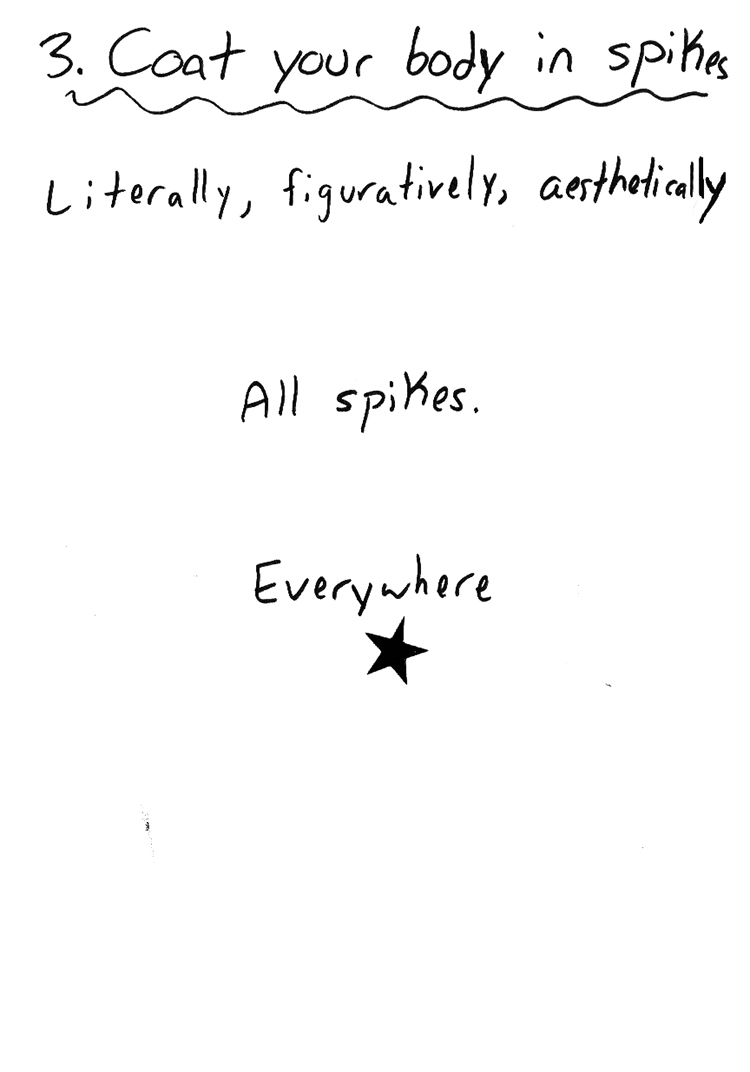 3. Coat your body in spikes
Literally, figuratively, aesthetically
All spikes.
Everywhere